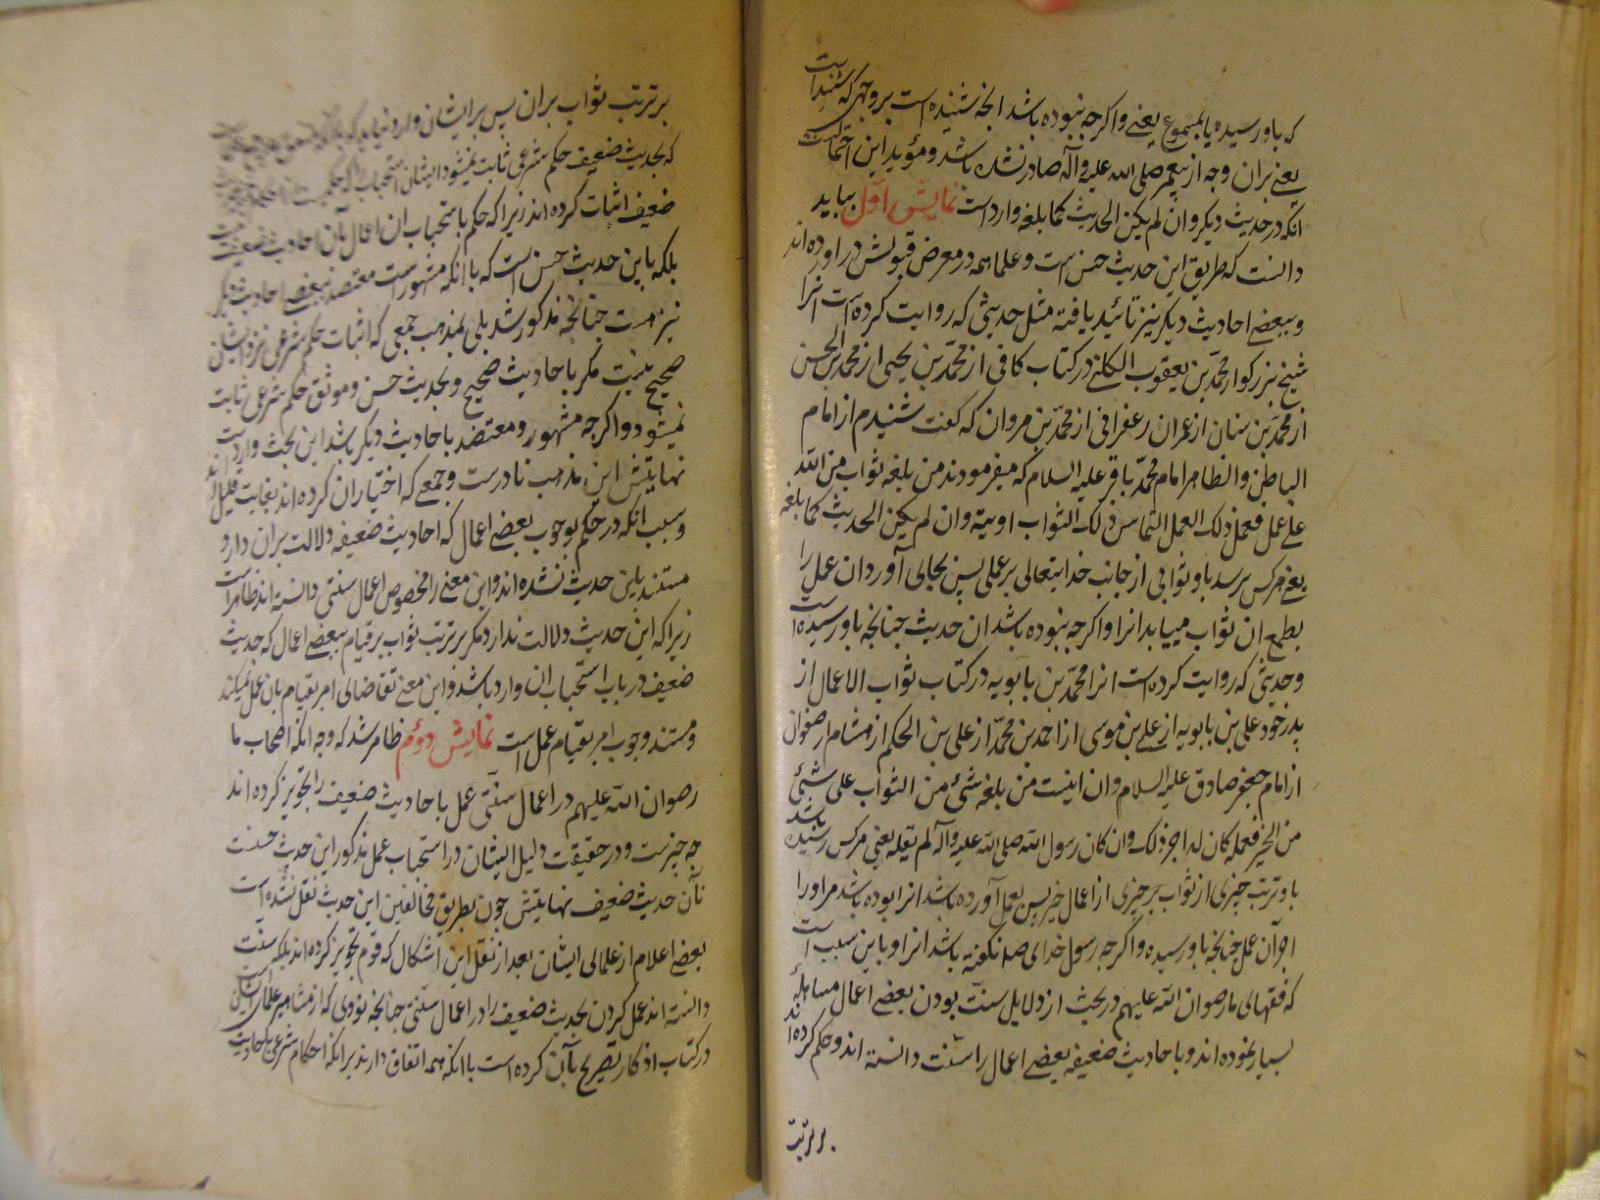 که باو رسیده یا بمسموع یعنے و اکرچه نبوده باشد انچه شنیده است بر وجهی که شنیده است
یعنے بران وجه از پیغمبر صلی الله علیه و اله صادر نشده باشد و مؤید این احتمالست
انکه در حدیث دیکر و ان لم یکن الحدیث کما بلغه وارد است نمایش اول بباید
دانست که طریق این حدیث حسن است و علما همه در معرض قبولش در اورده اند
و ببعضے احادیث دیکر نیز تائید یافته مثل حدیثی که روایت کرده است انرا
شیخ بزرکوار محمد بن یعقوب الکلینے در کتاب کافی از محمد بن یحیی از محمد بن الحسین
از محمد بن سنان از عمران زعفرانی از محمد بن مروان که کفت شنیدم از امام
الباطن و الظاهر امام محمد باقر علیه السلام که میفرمودند من بلغه ثواب من الله
علے عمل فعمل ذلک العمل التماس ذلک الثواب اوتیه و ان لم یکن الحدیث کما بلغه
یعنے هرکس برسد باو ثوابی از جانب خدایتعالی بر عملی پس بجای آورد ان عمل را
بطمع ان ثواب مییابد انرا و اکرچه نبوده باشد ان حدیث چنانچه باو رسیده است
و حدیثی که روایت کرده است انرا محمد بن بابویه در کتاب ثواب الاعمال از
پدر خود علی بن بابویه از علے بن موسی از احمد بن محمد از علی بن الحکم از هشام از صفوان
از امام جعفر صادق علیه السلام و ان اینست من بلغه شئ من الثواب علی شئ
من الخیر فعمله کان له اجر ذلک و ان کان رسول الله صلی الله علیه و اله لم یقله یعنی هرکس رسیده باشد
باو ترتب چیزی از ثواب بر چیزی از اعمال خیر پس بعمل آورده باشد انرا بوده باشد مر او را
اجر آن عمل چنانچه باو رسیده و اکرچه رسول خدای ص نکفته باشد انرا و باین سبب است
که فقهای ما رضوان الله علیهم در بحث از دلایل سنت بودن بعضے اعمال مساهله
بسیار نموده اند و باحادیث ضعیفه بعضے اعمال را سنت دانسته اند و حکم کرده اند
بر ترتب
بر ترتب ثواب بران پس بر ایشان وارد نیاید که
که بحدیث ضعیف حکم شرعی ثابت نمیشود ایشان استحباب را که حکم
ضعیف اثبات کرده اند زیرا که حکم باستحباب ان اعمال بآن احادیث ضعیف نیست
بلکه باین حدیث حسن است که با انکه مشهور است معتضد ببعضے احادیث دیکر
نیز هست چنانچه مذکور شد بلی بمذهب جمعی که اثبات حکم شرعی نزد ایشان
صحیح نیست مکر باحادیث صحیح و بحدیث حسن و موثق حکم شرعی ثابت
نمیشود و اکرچه مشهور و معتضد باحادیث دیکر باشد این بحث وارد است
نهایتش این مذهب نادرست و جمعے که اختیار ان کرده اند بغایت قلیل اند
و سبب انکه در حکم بوجوب بعضے اعمال که احادیث ضعیفه دلالت بران دارد
مستند باین حدیث نشده اند و این معنے را مخصوص اعمال سنتی دانسته اند ظاهر است
زیرا که این حدیث دلالت ندارد مکر بر ترتب ثواب بر قیام ببعضے اعمال که حدیث
ضعیف در باب استحباب ان وارد باشد و این معنے تقاضای امر بقیام بان عمل نمیکند
و مستند وجوب امر بقیام عمل است نمایش دوئم ظاهر شد که وجه انکه اصحاب ما
رضوان الله علیهم در اعمال سنتی عمل باحادیث ضعیف را تجویز کرده اند
چه چیزست و در حقیقت دلیل ایشان در استحباب عمل مذکور این حدیث حسنست
نه آن حدیث ضعیف نهایتش چون بطریق مخالفین این حدیث نقل نشده است
بعضے اعلام از علمای ایشان بعد از نقل این اشکال که قوم تجویز کرده اند بلکه سنت
دانسته اند عمل کردن بحدیث ضعیف را در اعمال سنتی چنانچه نووی که از مشاهیر علمای ایشان است
در کتاب اذکار تصریح بآن کرده است با انکه همه اتفاق دارند بر انکه احکام شرعی باحادیث